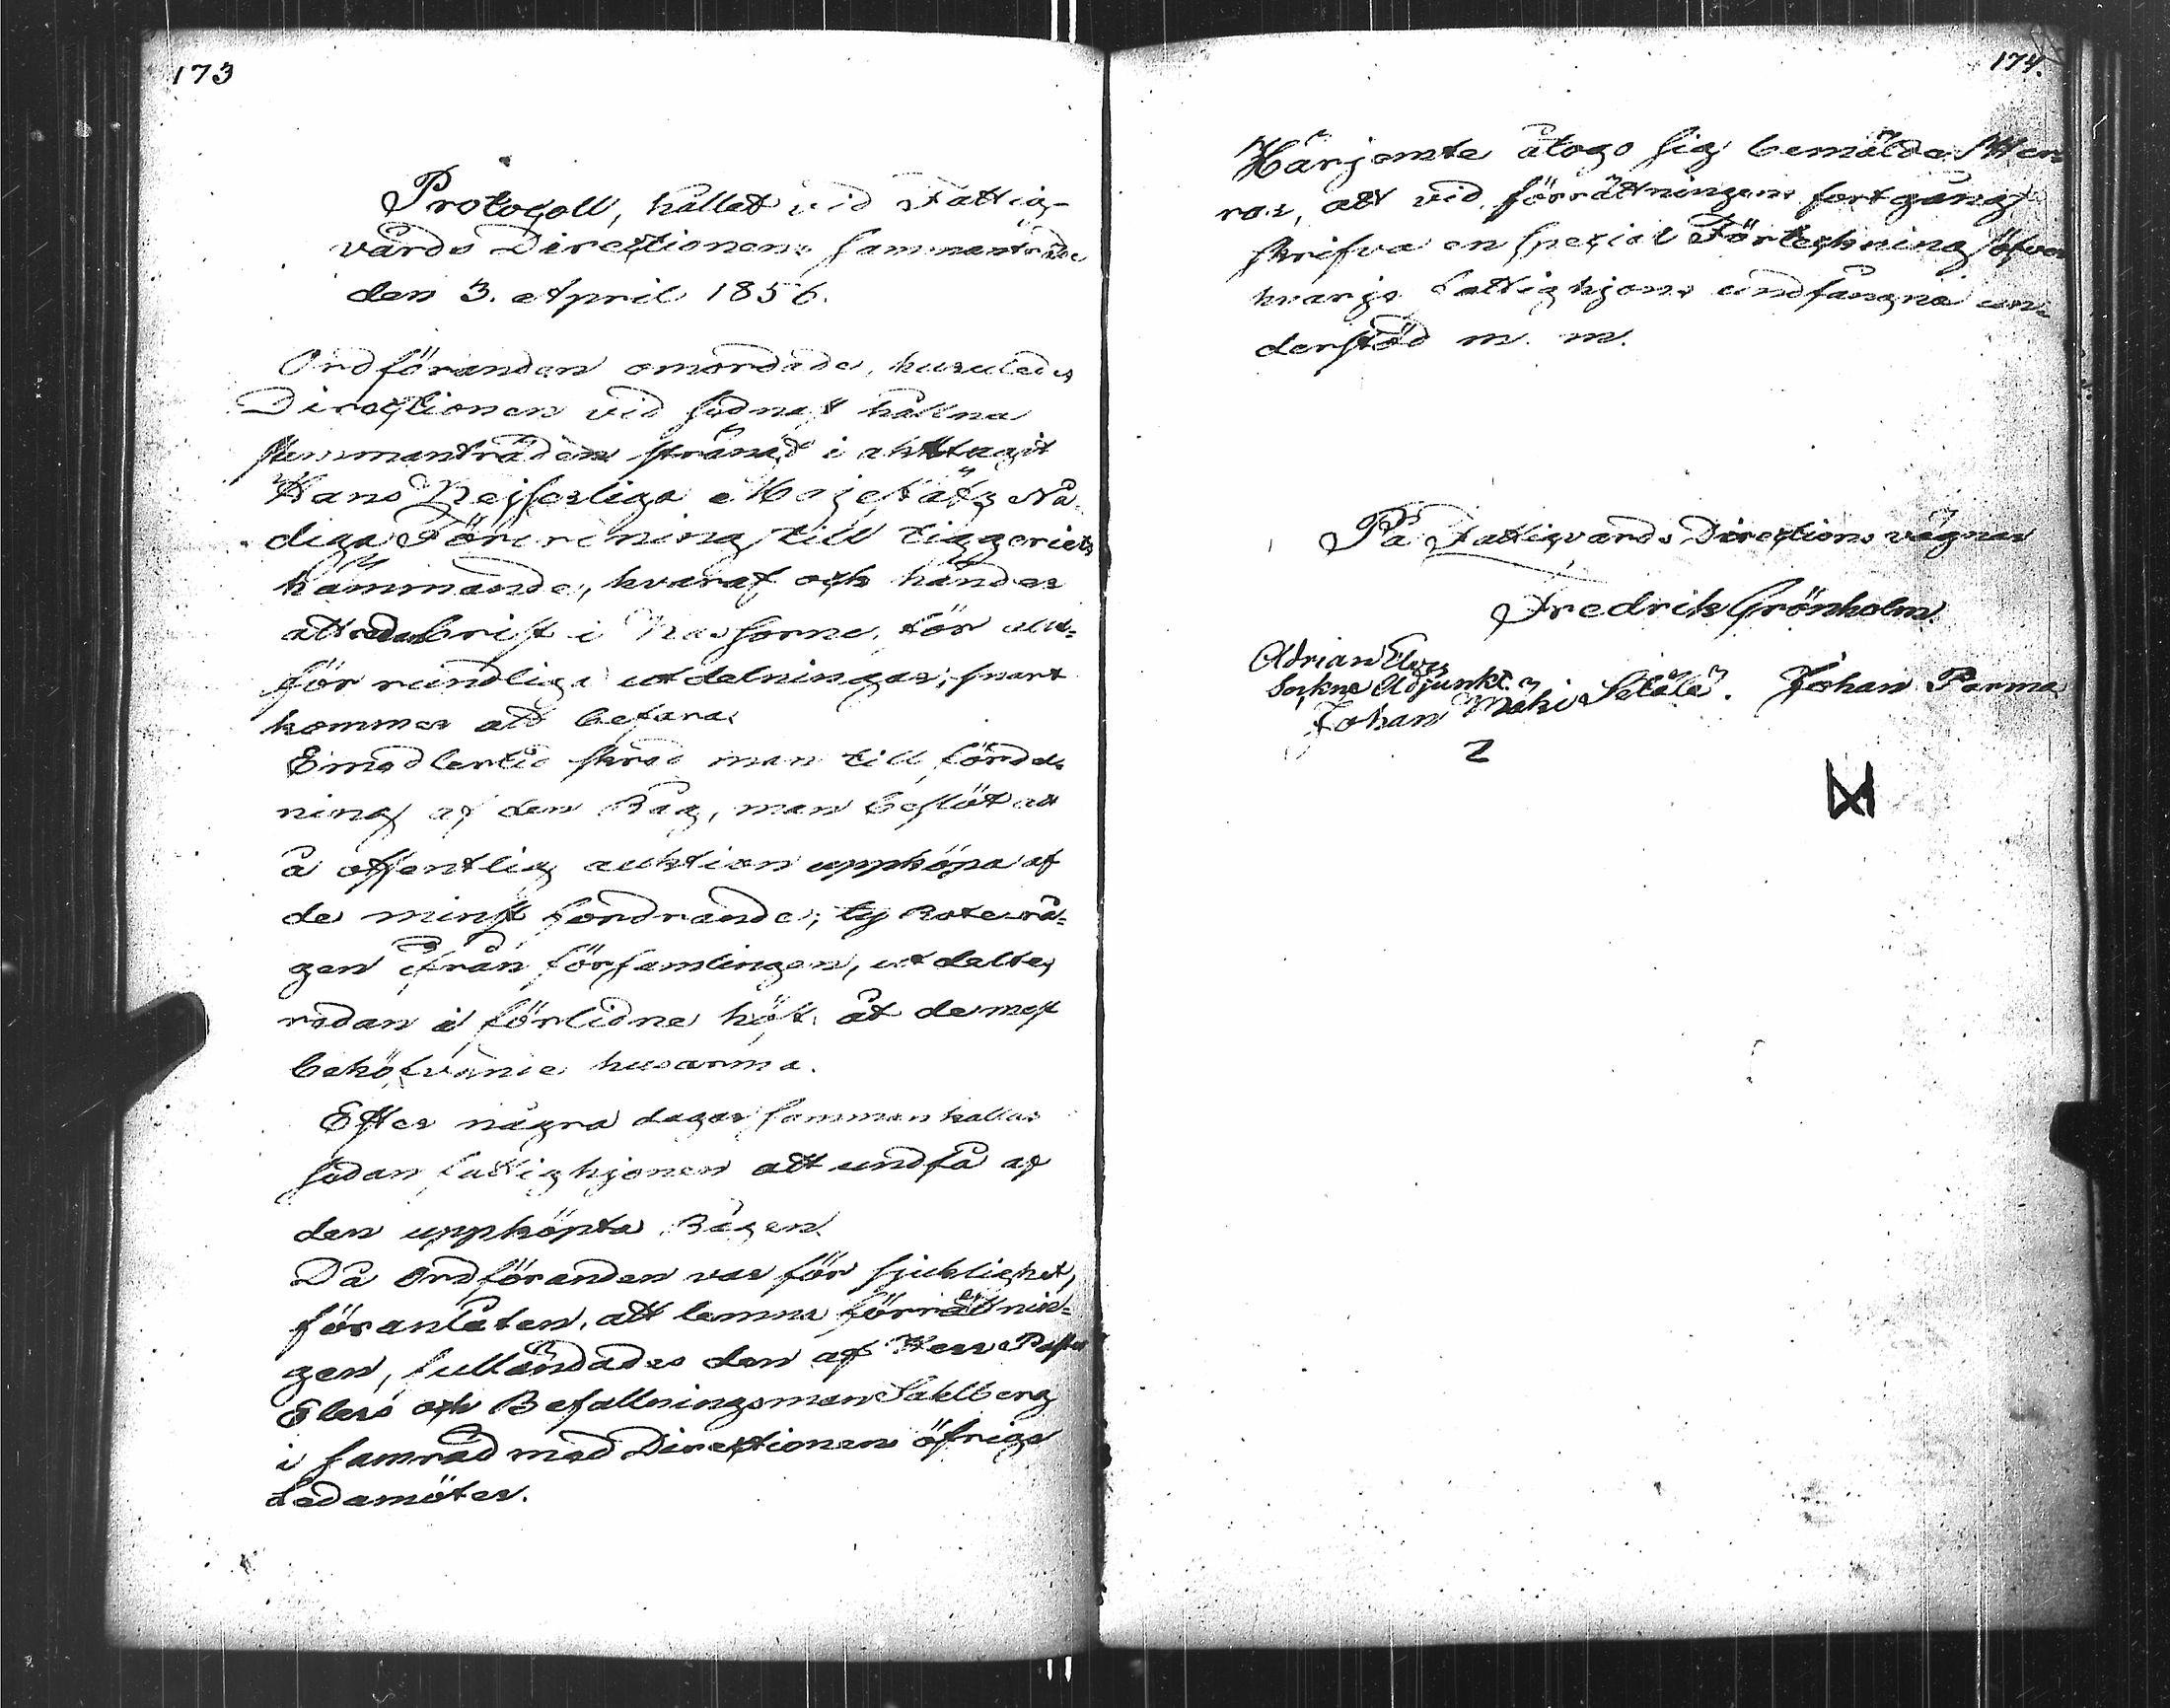 173
Protocoll, hållet vid Fattig-
vårds Directionens sammanträde
den 3. April 1856.
Ordföranden omordade, huruledes
Directionen vid sednast hållna
sammanträden strängt i akttagit
Hans Kejserliga Majestäts Nå-
diga Förordning till tiggeriets
hämmande, hvaraf och händer
att redan brist i Kassorne, för
för rundliga utdelningar, snart
kommer att befaras
Emedlertid skred man till fördel-
ning af den Råg, man beslöt att
å offentlig auktion uppköpa af
de minst fordrande; ty Roterå-
gen ifrån församlingen, utdeltes
redan i förlidne höst åt de mest
behöfvande husarma.
Efter några dagar sammankallas
sedan fattighjonen att undfå af
den uppköpta Rågen.
Då Ordföranden var för sjuklighet,
föranlåten, att lemna förrättnin-
gen, fulländades den af Herr Pastor
Elers och Befallningsman Sahlberg
i samråd med Directionens öfriga
Ledamöter.
174.
Härjemte åtogo sig bemälde Her-
rar, att vid förrättningens fortgång
skrifva en special Förteckning öfver
hvarje Fattighjons undfångna un-
derstöd m. m.
På Fattigvårds Directions vägnar
Fredrik Grönholm.
Adrian Elers
Sockne Adjunkt.
Johan Mäki Setälä. Johan Parma